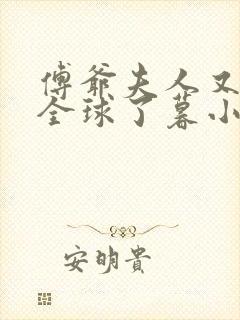 傅爺夫人又
全球了暮小
安明貴